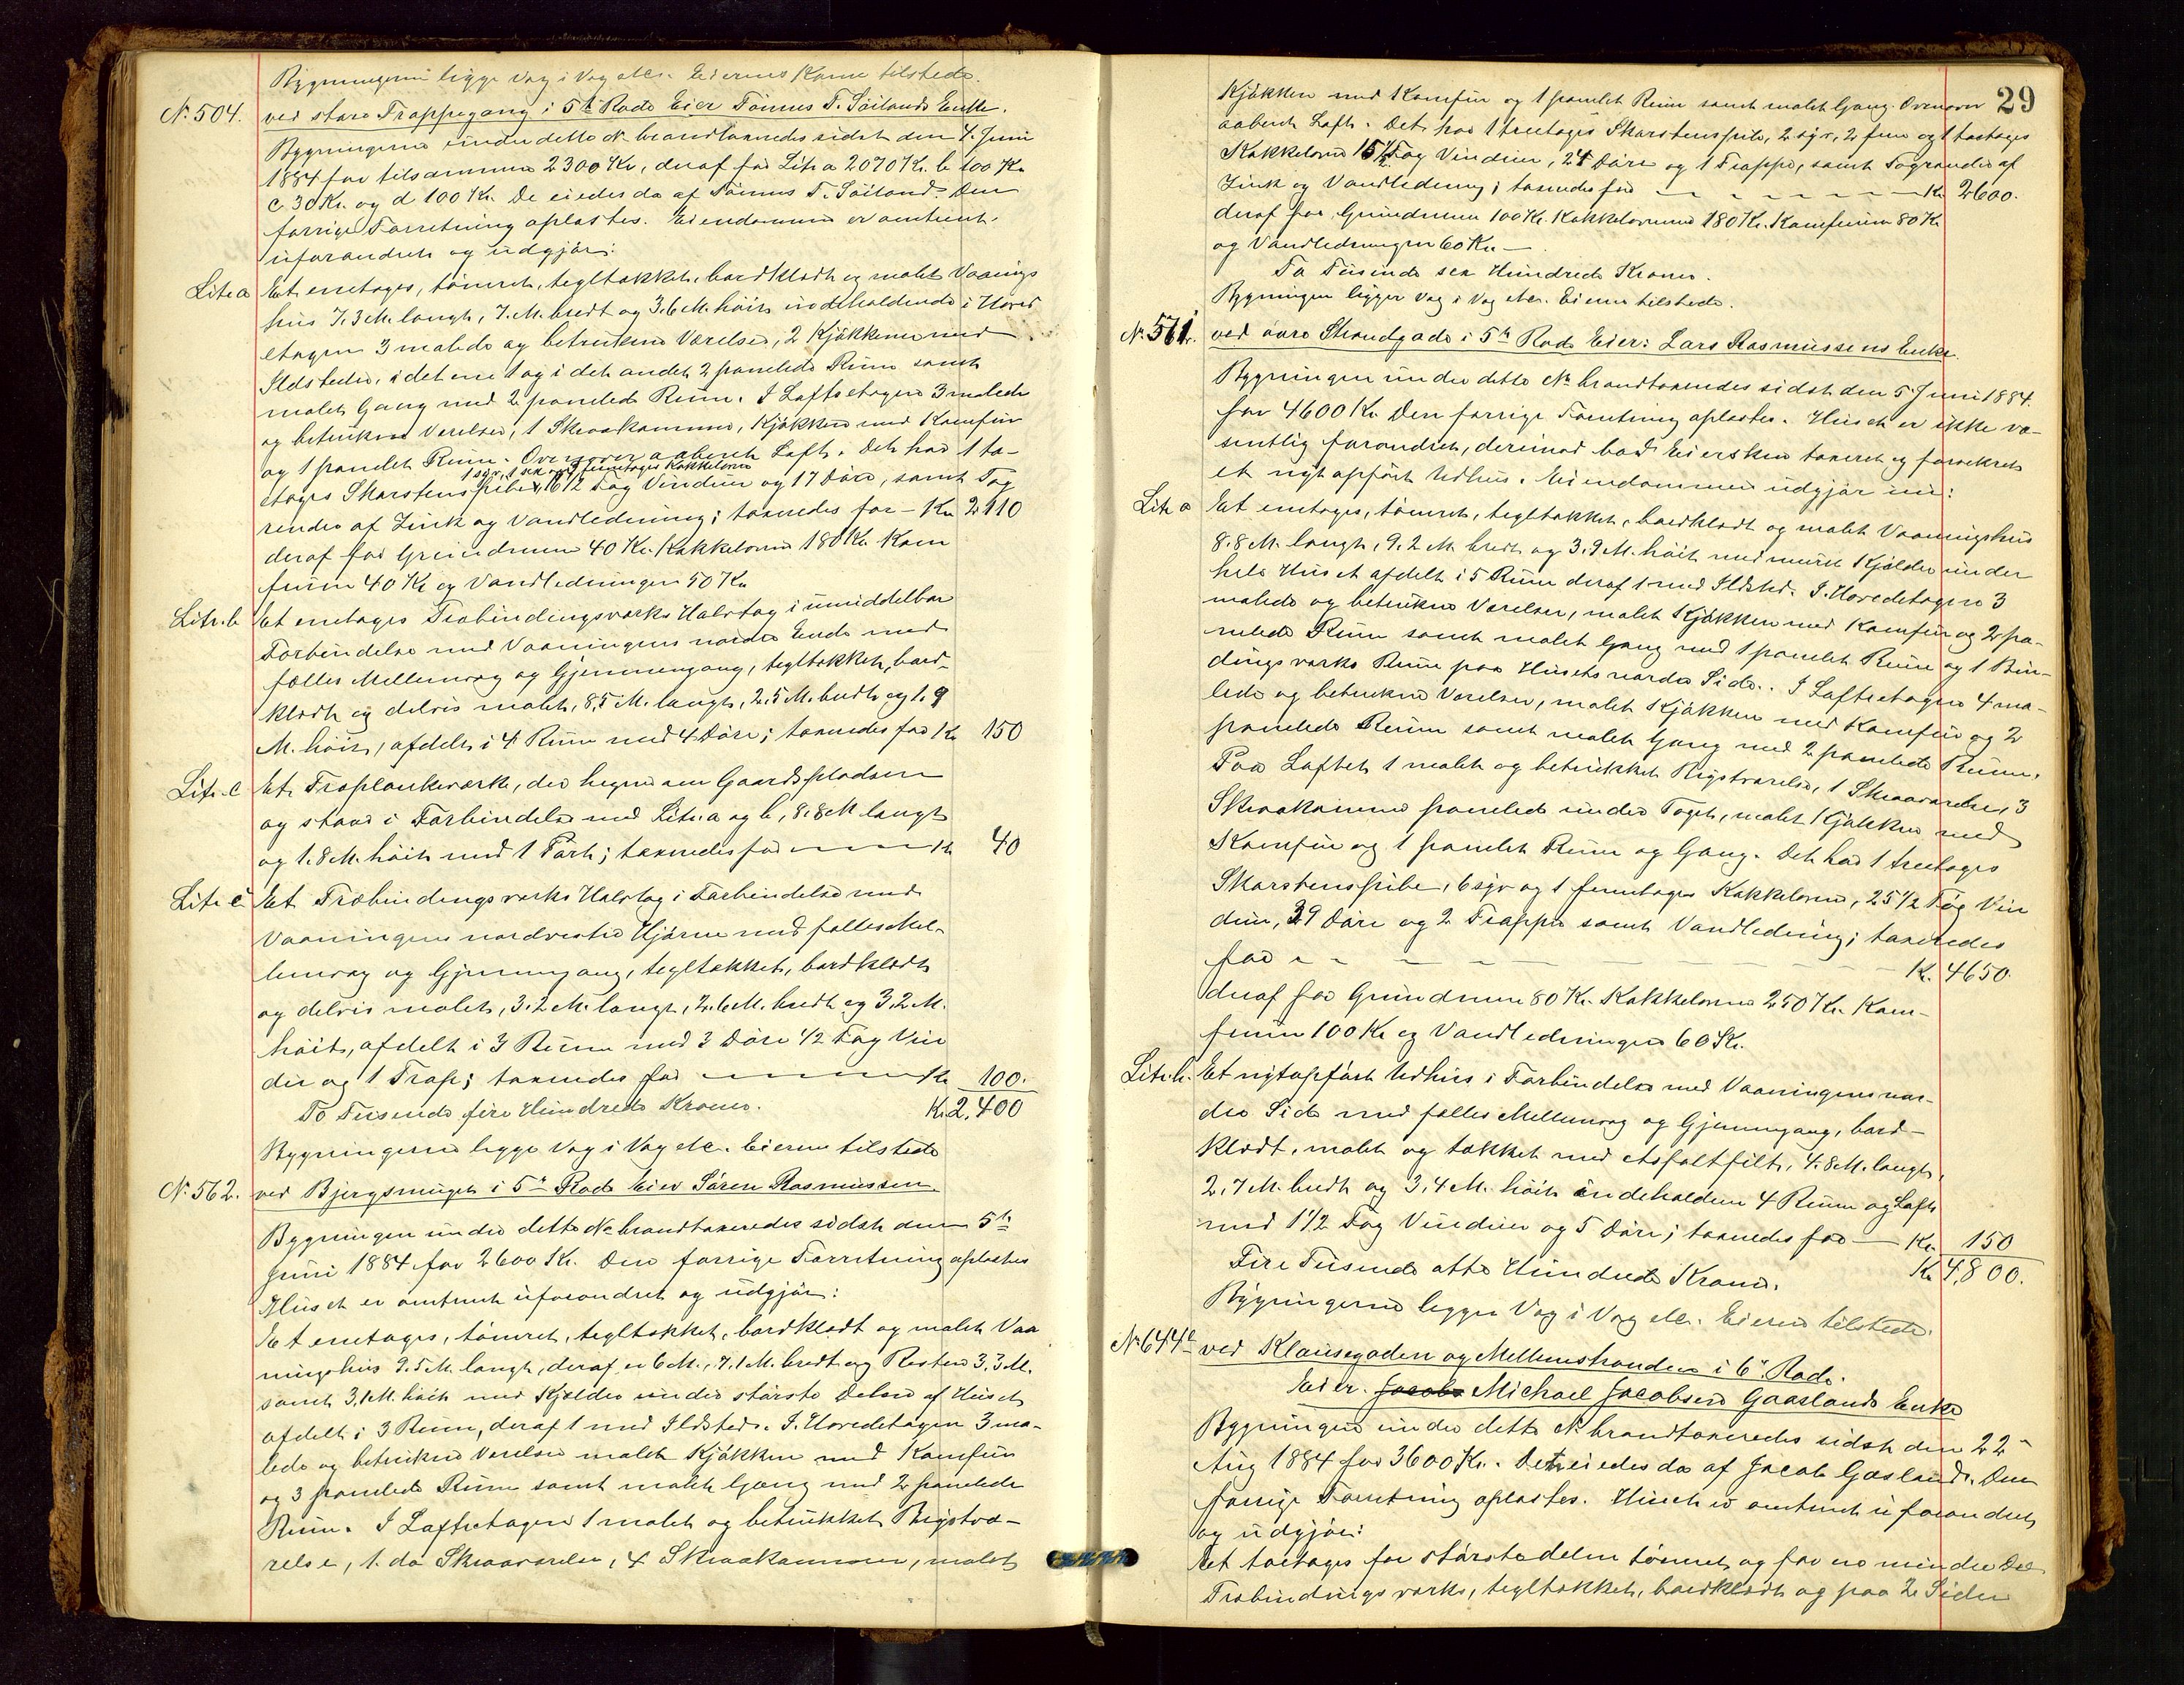 Bygningerne ligge Væg i Væg etc. Eierens Kone tilstede.
N. 504. ved store Trappegang i 5te Rode Eier Tönnes T. Söilands Enke.
Bygningerne under dette No brandtaxeredes sidst den 4. Juni
1884 for tilsammen 2300 Kr, deraf for Litr a 2070 Kr. b 100 Kr
c 30 Kr. og d 100 Kr. De eiedes da af Tönnes T. Söiland. Den
forrige Forretning oplæstes. Eiendommen er omtrent
uforandret og udgjör:
Litr a Et enetages, tömret, tegltækket, bordklædt og malet Vaanings
hus 7,3 M. langt, 7. M. bredt og 3,6 M. höit indeholdende i Hoved
etagen 3 malede og betrukne Værelser, 2 Kjökkener med
Ildsteder, i det ene 1 og i det andet 2 panelede Rum samt
malet Gang med 2 panelede Rum. I Loftsetagen 3 malede
og betrukne Værelser, 1 Skraakammer, Kjökken med Komfur
og 1 panelet Rum. Ovenover aabent Loft. Det har 1 to-
1 syv, 1 sex og 1 femetages Kakkelovn
etages Skorstenspibe, 16 1/2 Fag Vinduer og 17 Döre, samt Tag
render af Zink og Vandledning; taxeredes for - Kr 2110
deraf for Grundmur 40 Kr. Kakkelovne 180 Kr. Kom
furer 40 Kr og Vandledningen 50 Kr
Litr. b Et enetages Træbindingsværks Halvtag i umiddelbar
Forbindelse med Vaaningens nordre Ende med
fælles Mellemvæg og Gjennemgang, tegltækket, bord-
klædt og delvis malet, 8,5 M. langt, 2,5 M. bredt og 1,9
M. höit, afdelt i 4 Rum med 4 Döre; taxeredes for Kr 150
Litr. c Et Træplankeværk, der hegner om Gaardspladsen
og staar i Forbindelse med Litr. a og b, 8,8 M langt
og 1,8 M. höit med 1 Port; taxeredes for Kr 40
Litr c Et Træbindingsværks Halvtag i Forbindelse med
Vaaningens nordvestre Hjörne med fælles Mel-
lemvæg og Gjennemgang, tegltækket, bordklædt
og delvis malet, 3,2 M. langt, 2,6 M. bredt og 3,2 M.
höit, afdelt i 3 Rum med 3 Döre 1/2 Fag Vin
duer og 1 Trap; taxeredes for Kr 100.
To Tusinde fire Hundrede Kroner. Kr. 2,400
Bygningerne ligge Væg i Væg etc. Eieren tilstede
N. 562. ved Bjergsmuget i 5te Rode Eier Sören Rasmussen.
Bygningen under dette No brandtaxeredes sidst den 5te
Juni 1884 for 2600 Kr. Den forrige Forretning oplæstes
Huset er omtrent uforandret og udgjör:
Et enetages, tömret, tegltækket, bordklædt og malet Vaa
ningshus 9,5 M. langt, deraf er 6 M., 7,1 M. bredt og Resten 3,3 M.
samt 3,1 M. höit med Kjelder under störste Delen af Huset
afdelt i 3 Rum, deraf 1 med Ildsted. I Hovedetagen 3 ma-
lede og betrukne Værelser malet Kjökken med Komfur
og 3 panelede Rum samt malet Gang med 2 panelede
Rum. I Loftsetagen 1 malet og betrukket Kvistvæ-
relse, 1. do Skraaværelse, 4 Skraakammere, malet
29
Kjökken med Komfur og 1 panelet Rum samt malet Gang. Ovenover
aabent Loft. Det har 1 treetages Skorstenspibe, 2 syv, 2 fem og 1 toetages
Kakkelovne 15 1/2 Fag Vinduer, 24 Döre og 1 Trappe, samt Tagrender af
Zink og Vandledning; taxeredes for Kr 2600.
deraf for Grundmur 100 Kr. Kakkelovnene 180 Kr. Komfurerne 80 Kr
og Vandledningen 60 Kr.
To Tusinde sex Hundrede Kroner.
Bygningen ligger Væg i Væg etc. Eieren tilstede.
N. 571. ved övre Strandgade i 5te Rode Eier: Lars Rasmussens Enke.
Bygningen under dette No brandtaxeredes sidst den 5 Juni 1884.
for 4600 Kr. Den forrige Forretning oplæstes. Huset er ikke væ-
sentlig forandret, derimod bad Eiersken taxeret og forsikret
et nytopfört Udhus. Eiendommen udgjör nu:
Litr a Et enetages, tömret, tegltækket, bordklædt og malet Vaaningshus
8,8 M. langt, 9,2 M. bredt og 3,9 M. höit med muret Kjelder under
hele Huset afdelt i 5 Rum deraf 1 med Ildsted. I Hovedetagen 3
malede og betrukne Værelser, malet Kjökken med Komfur og 2 pa-
nelede Rum samt malet Gang med 1 panelet Rum og 1 Bin-
dingsværks Rum paa Husets nordre Side. I Loftsetagen 4 ma-
lede og betrukne Værelser, malet Kjökken med Komfur og 2
panelede Rum samt malet Gang med 2 panelede Rum.
Paa Loftet 1 malet og betrukket Kvistværelse, 1 Skraaværelse, 3
Skraakammere panelede under Taget, malet Kjökken med
Komfur og 1 panelet Rum og Gang. Det har 1 treetages
Skorstenspibe, 6 syv og 1 femetages Kakkelovne, 25 1/2 Fag Vin
duer, 39 Döre og 2 Trapper samt Vandledning; taxeredes
for Kr. 4650.
deraf for Grundmur 80 Kr. Kakkelovne 250 Kr. Kom-
furer 100 Kr og Vandledningen 60 Kr.
Litr. b. Et nytopfört Udhus i Forbindelse med Vaaningens nor-
dre Side med fælles Mellemvæg og Gjennemgang, bord-
klædt, malet og tækket med Asfaltfilt, 4,8 M. langt,
2,7 M. bredt og 3,4 M. höit indeholdene 4 Rum og Loft
med 1 1/2 Fag Vinduer og 5 Döre; taxeredes for Kr 150
Fire Tusinde otte Hundrede Kroner. Kr 4,800.
Bygningerne ligger Væg i Væg etc. Eieren tilstede.
No 644a ved Klausegaden og Mellemstranden i 6te Rode.
Eier. Jacob Michael Jacobsen Gaaslands Enke
Bygningen under dette No brandtaxeredes sidst den 22de
Aug 1884 for 3600 Kr. Det eiedes da af Jacob Gaasland. Den
forrige Forretning oplæstes. Huset er omtrent uforandret
og udgjör:
Et toetages for störstedelen tömret og for en mindre Del
Træbindingsværks, tegltækket, bordklædt og paa 2 Sider